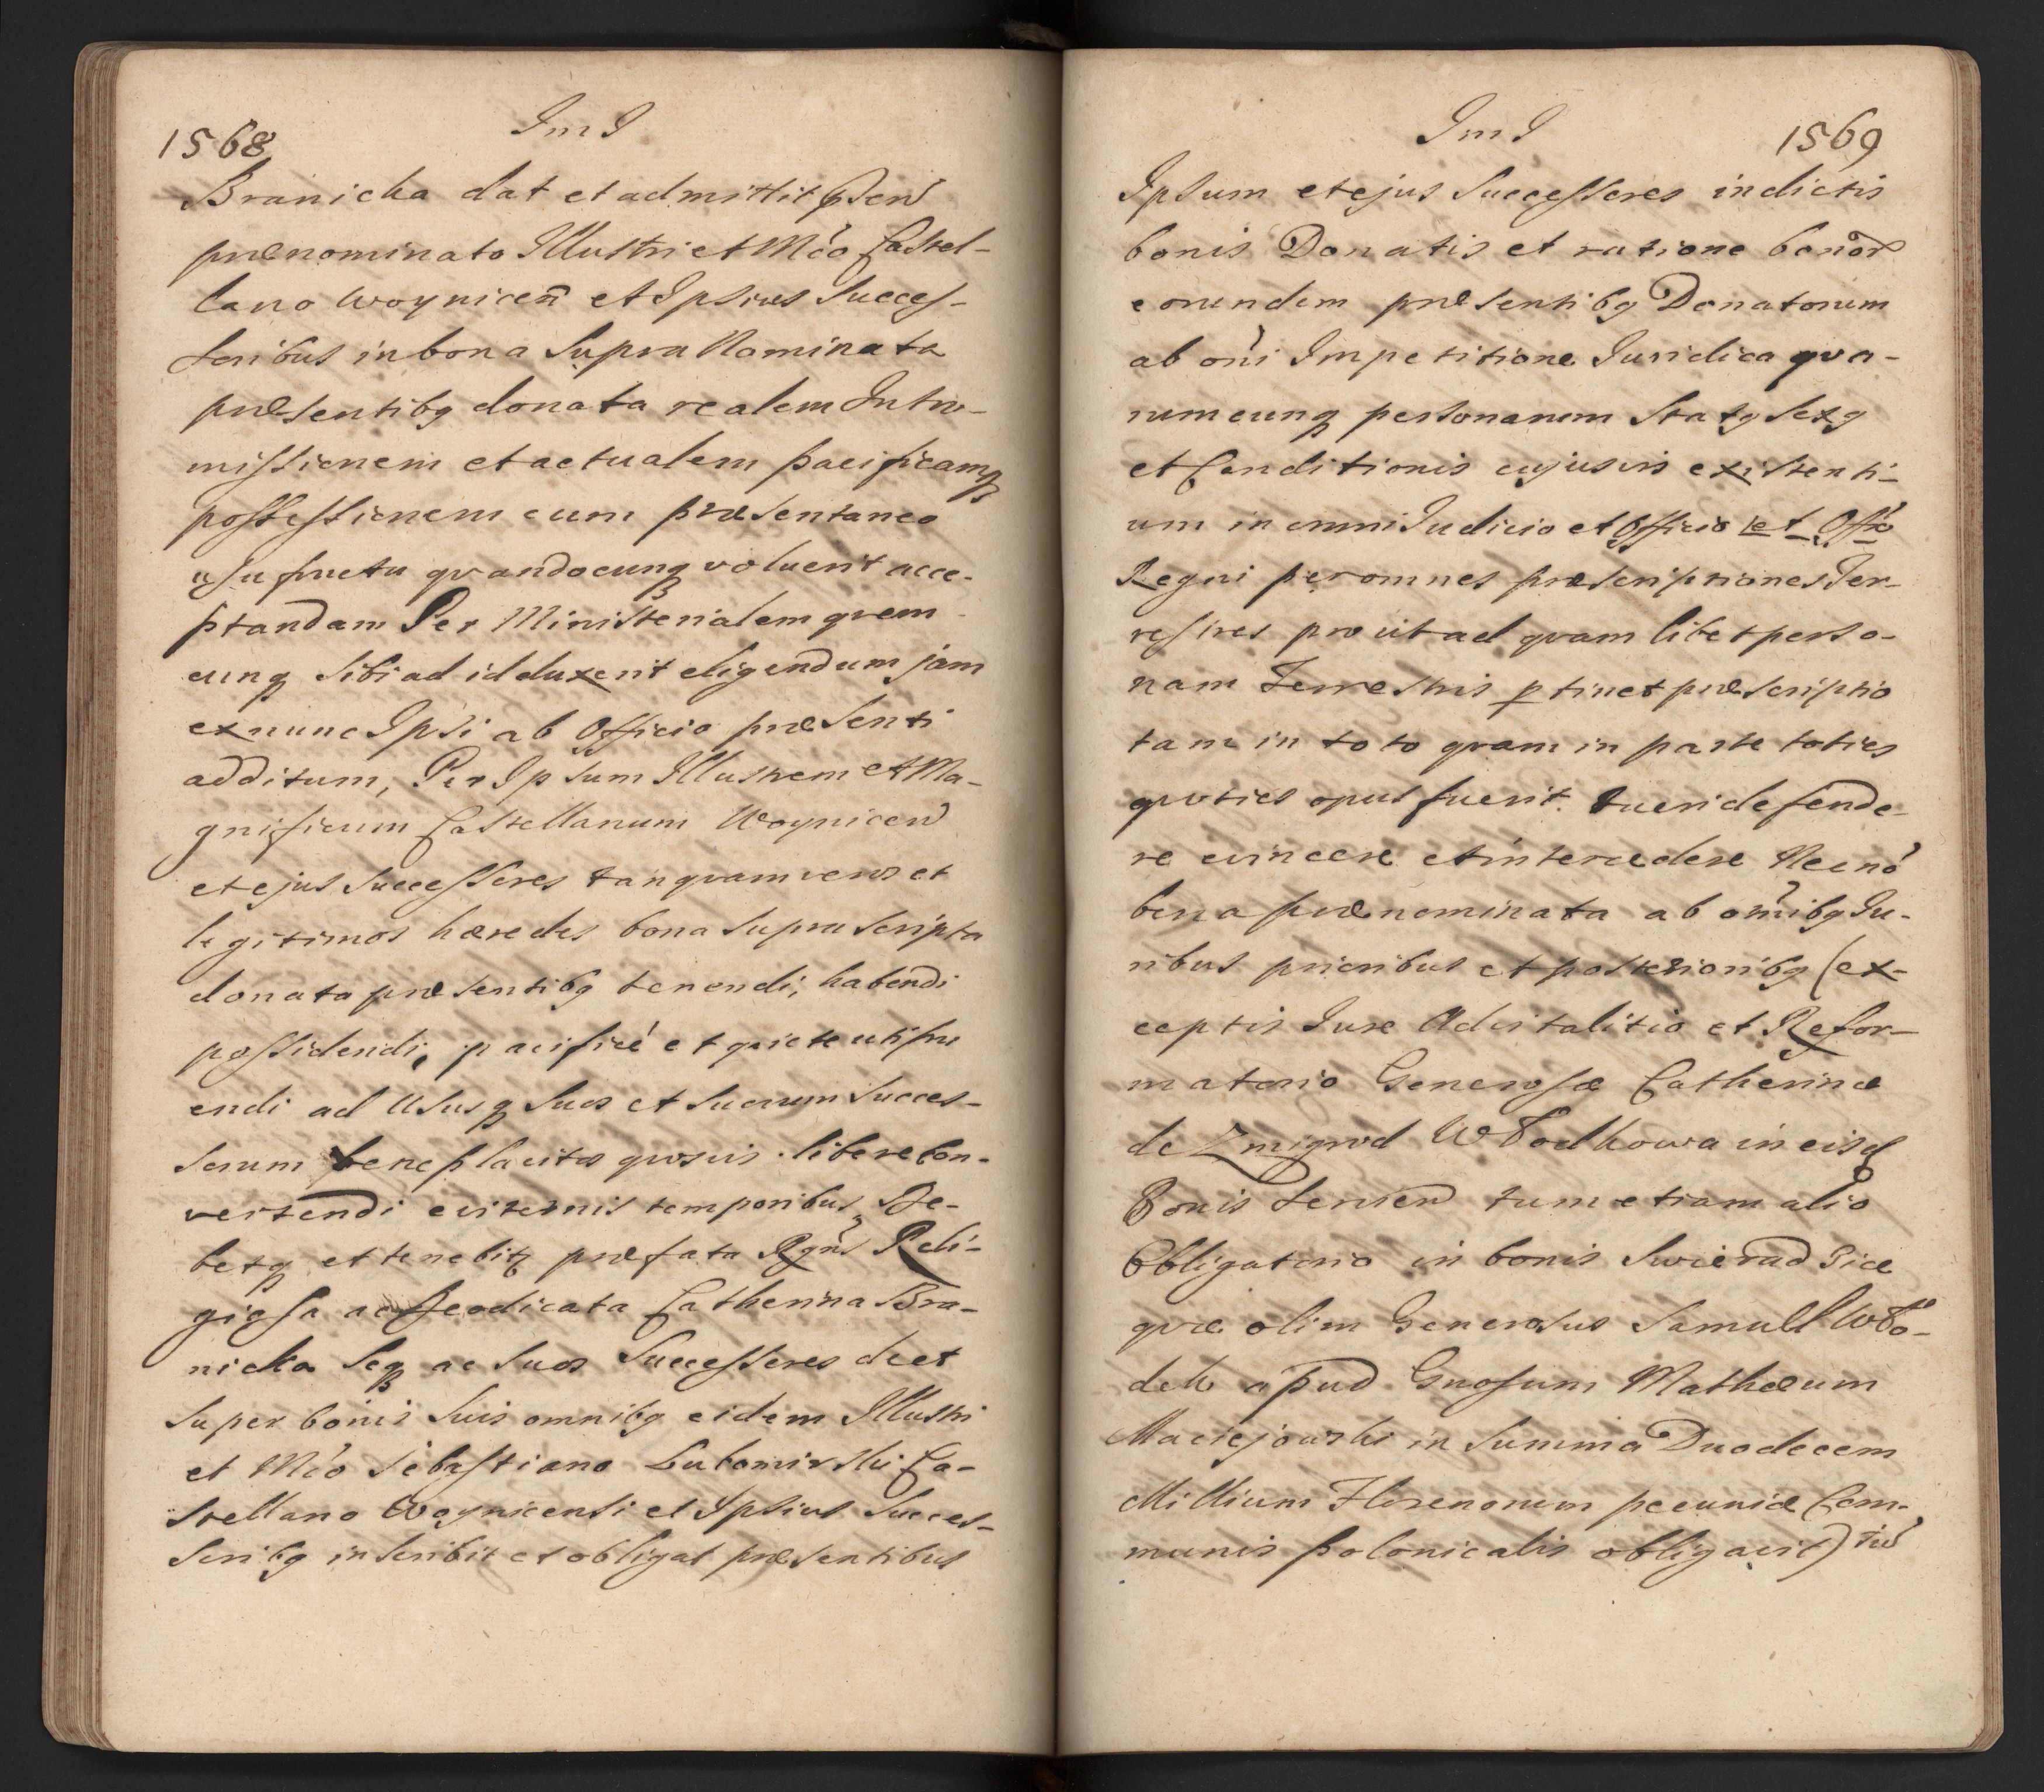 1568
ImI
Branicka dat et admittit
prænominato Illustri et Mco Castel-
lano Woynicen et Ipsius Succes-
soribus in bona Supra Nominata
præsentibq donata realem Intro-
missionem et actualem pacificamq
possessionem cum præsentaneo
usufructu qvandocunq voluerit acce-
ptandam Per Ministerialem qvem
cunq sibi ad id duxerit eligendum jam
ex nunc Ipsi ab Officio præsenti
additum, Per Ipsum Illustrem et Ma-
gnificum Castellanum Woynicen
et ejus Successores tanqvam veros et
legitimos hæredes bona supra scripta
donata præsentibq tenendi, habendi
possidendi, pacificé et qviete utifru
endi ad Ususq suos et suorum Succes-
sorum beneplacitos qvosvis libere con-
vertendi eviternis temporibus, De-
betq et tenebitq præfata Rgns Reli-
giosa ac Deodicata Catherina Bra-
nicka Seq ac suos Successores de et
super bonis suis omnibq eidem Illustri
et Mco Sebastiano Lubomirski Ca-
stellano Woynicensi et Ipsius Succes-
soribq inscribit et obligat præsentibus
ImI
1569
Ipsum et ejus Successores in dictis
bonis Donatis et ratione bonor
eorundem præsentibq Donatorum
ab oni Impetitione Juridica qva-
rumcunq personarum Statq Sexq
et Conditionis cujusvis existenti-
um in omni Judicio et Officio et Offo
Regni per omnes præscriptiones Ter-
restres pro ut ad qvam libet perso-
nam Terrestris ptinet præscriptio
tam in toto qvam in parte toties
qvoties opus fuerit. tueri defende-
re evincere et intercedere Necnó
bona prænominata ab omibq Ju-
ribus prioribus et posterioribq (ex-
ceptis Jure Advitalitio et Refor-
matorio Generosæ Catherinæ
de Zmigrod Włodkowa in eisd
Bonis tum etiam alio
Obligatorio in bonis Swierad3ice
qvæ olim Generosus Samuel Wło-
dek apud Gnosum Mathæum
Maciejowski in Summa Duodecem
Millium Florenorum pecuniæ Com-
munis polonicalis obligavit)